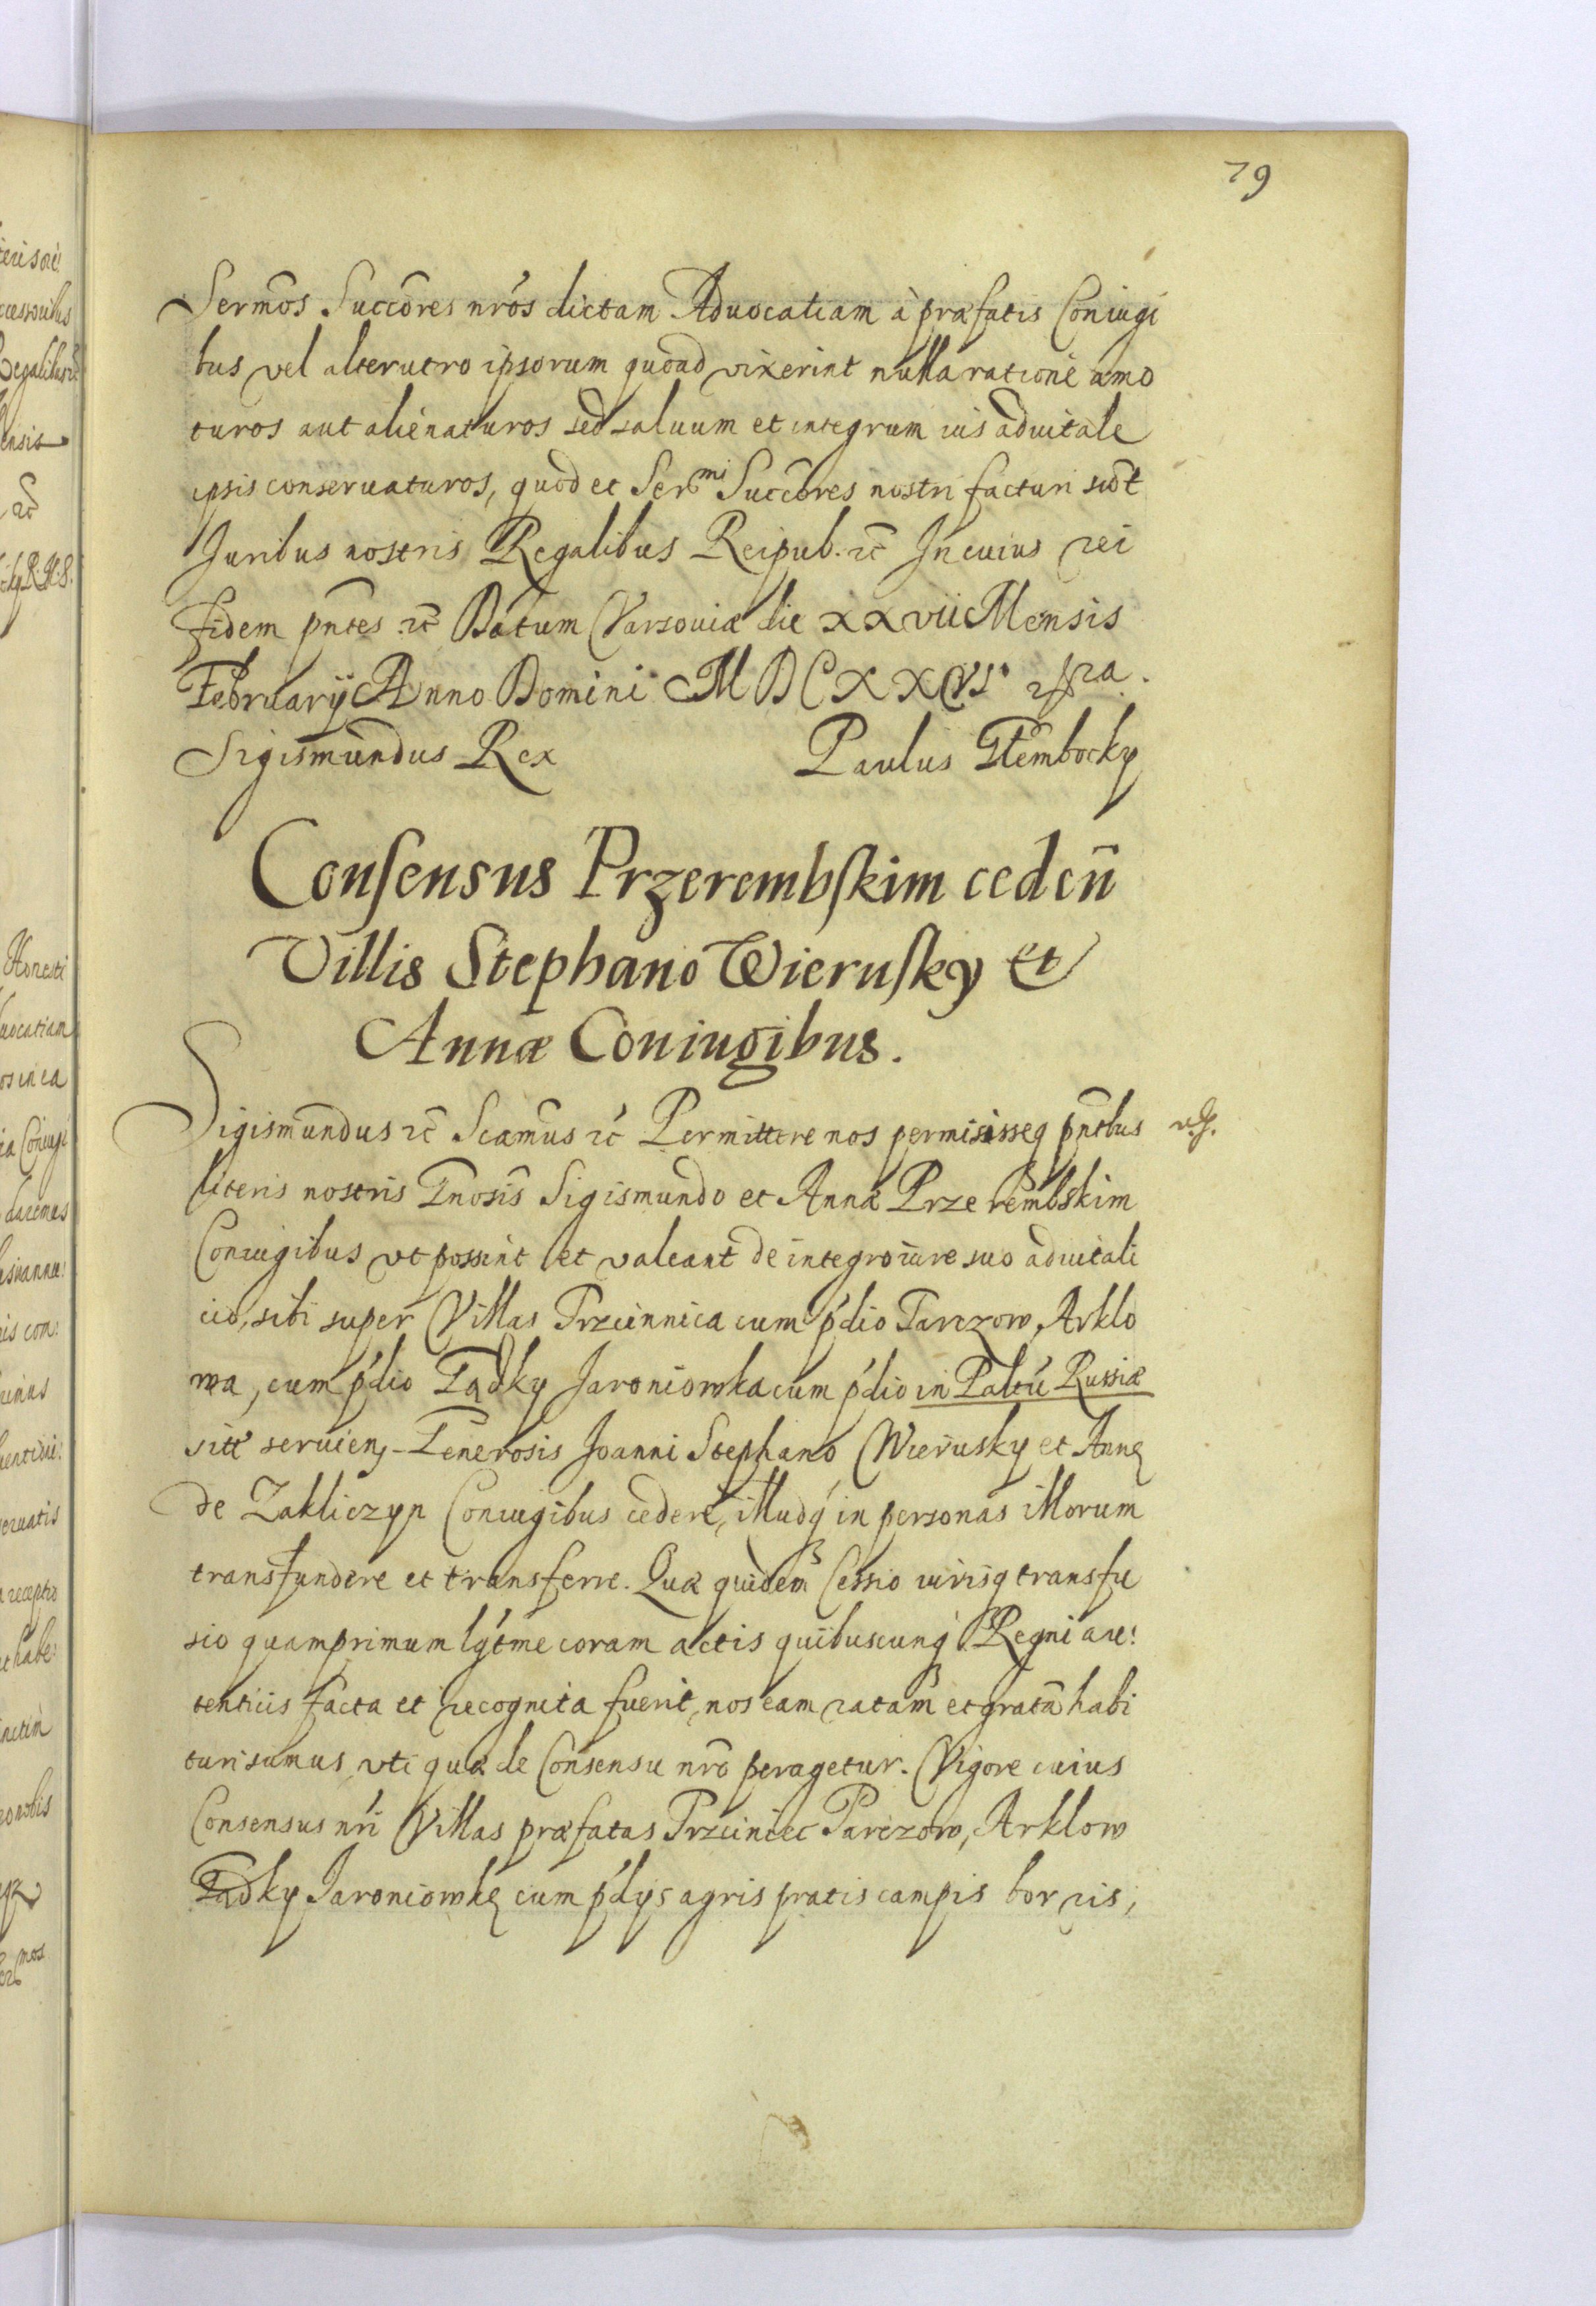 79
Sermõs Succõres nrós dictam Aduocatiam à præfatis Coniugi
bus vel alterutro ipsorum quoad vixerint nulla ratione amo
turos aut alienaturos sed saluum et integrum ius aduitale
ipsis conseruaturos, quod et Sermi Succõres nostri facturi sũt
Juribus nostris Regalibus Reipub. ic̃ In cuius rei
fidem pñtes ic̃ Datum Varsouiæ die xxvii Mensis
February Anno Domini MDCXXVI
Sigismundus Rex Paulus Głembocky
Consensus Przerembskim cedeñ
Villis Stephano Wierusky et
Annæ Coniugibus.
Sigismundus ic̃ Scamũs ic̃ Permittere nos permisisseq pñtbus
literis nostris Gnosis Sigismundo et Annæ Przerembskim
Coniugibus vt possint et valeant de integro iure suo aduitali
cio, sibi super Villas Trzcinnica cum p̃dio Tarczow, Arklo
wa, cum p̃dio Tadky Jaroniowka cum p̃dio in Paltũ Russiæ
sitt seruien, Generosis Joanni Stephano Wierusky et Annę
de Zakliczyn Coniugibus cedere, illudq́ in personas illorum
transfundere et transferre. Quæ quidem Cessio iurisq transfu
sio quamprimum lgt́me coram actis quibuscunq́ Regni au:
tenticis facta et recognita fuerit, nos eam ratam et gratã habi
turi sumus vti quæ de Consensu nrõ peragetur. Vigore cuius
Consensus nrí Villas præfatas Trzciniec Tarczow, Arklow
Tadky Jaroniowkę cum p̃dys agris pratis campis borris,